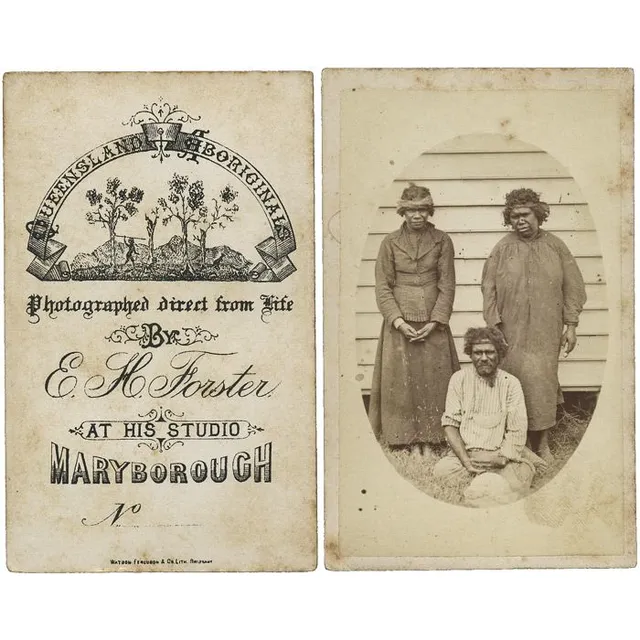 QUEENSLAND ABORIGINALS
Photographed direct from Life
BY
E. H. Forster
AT HIS STUDIO
MARYBOROUGH
No
WATSON FERGUSON & CO. LITH. BRISBANE